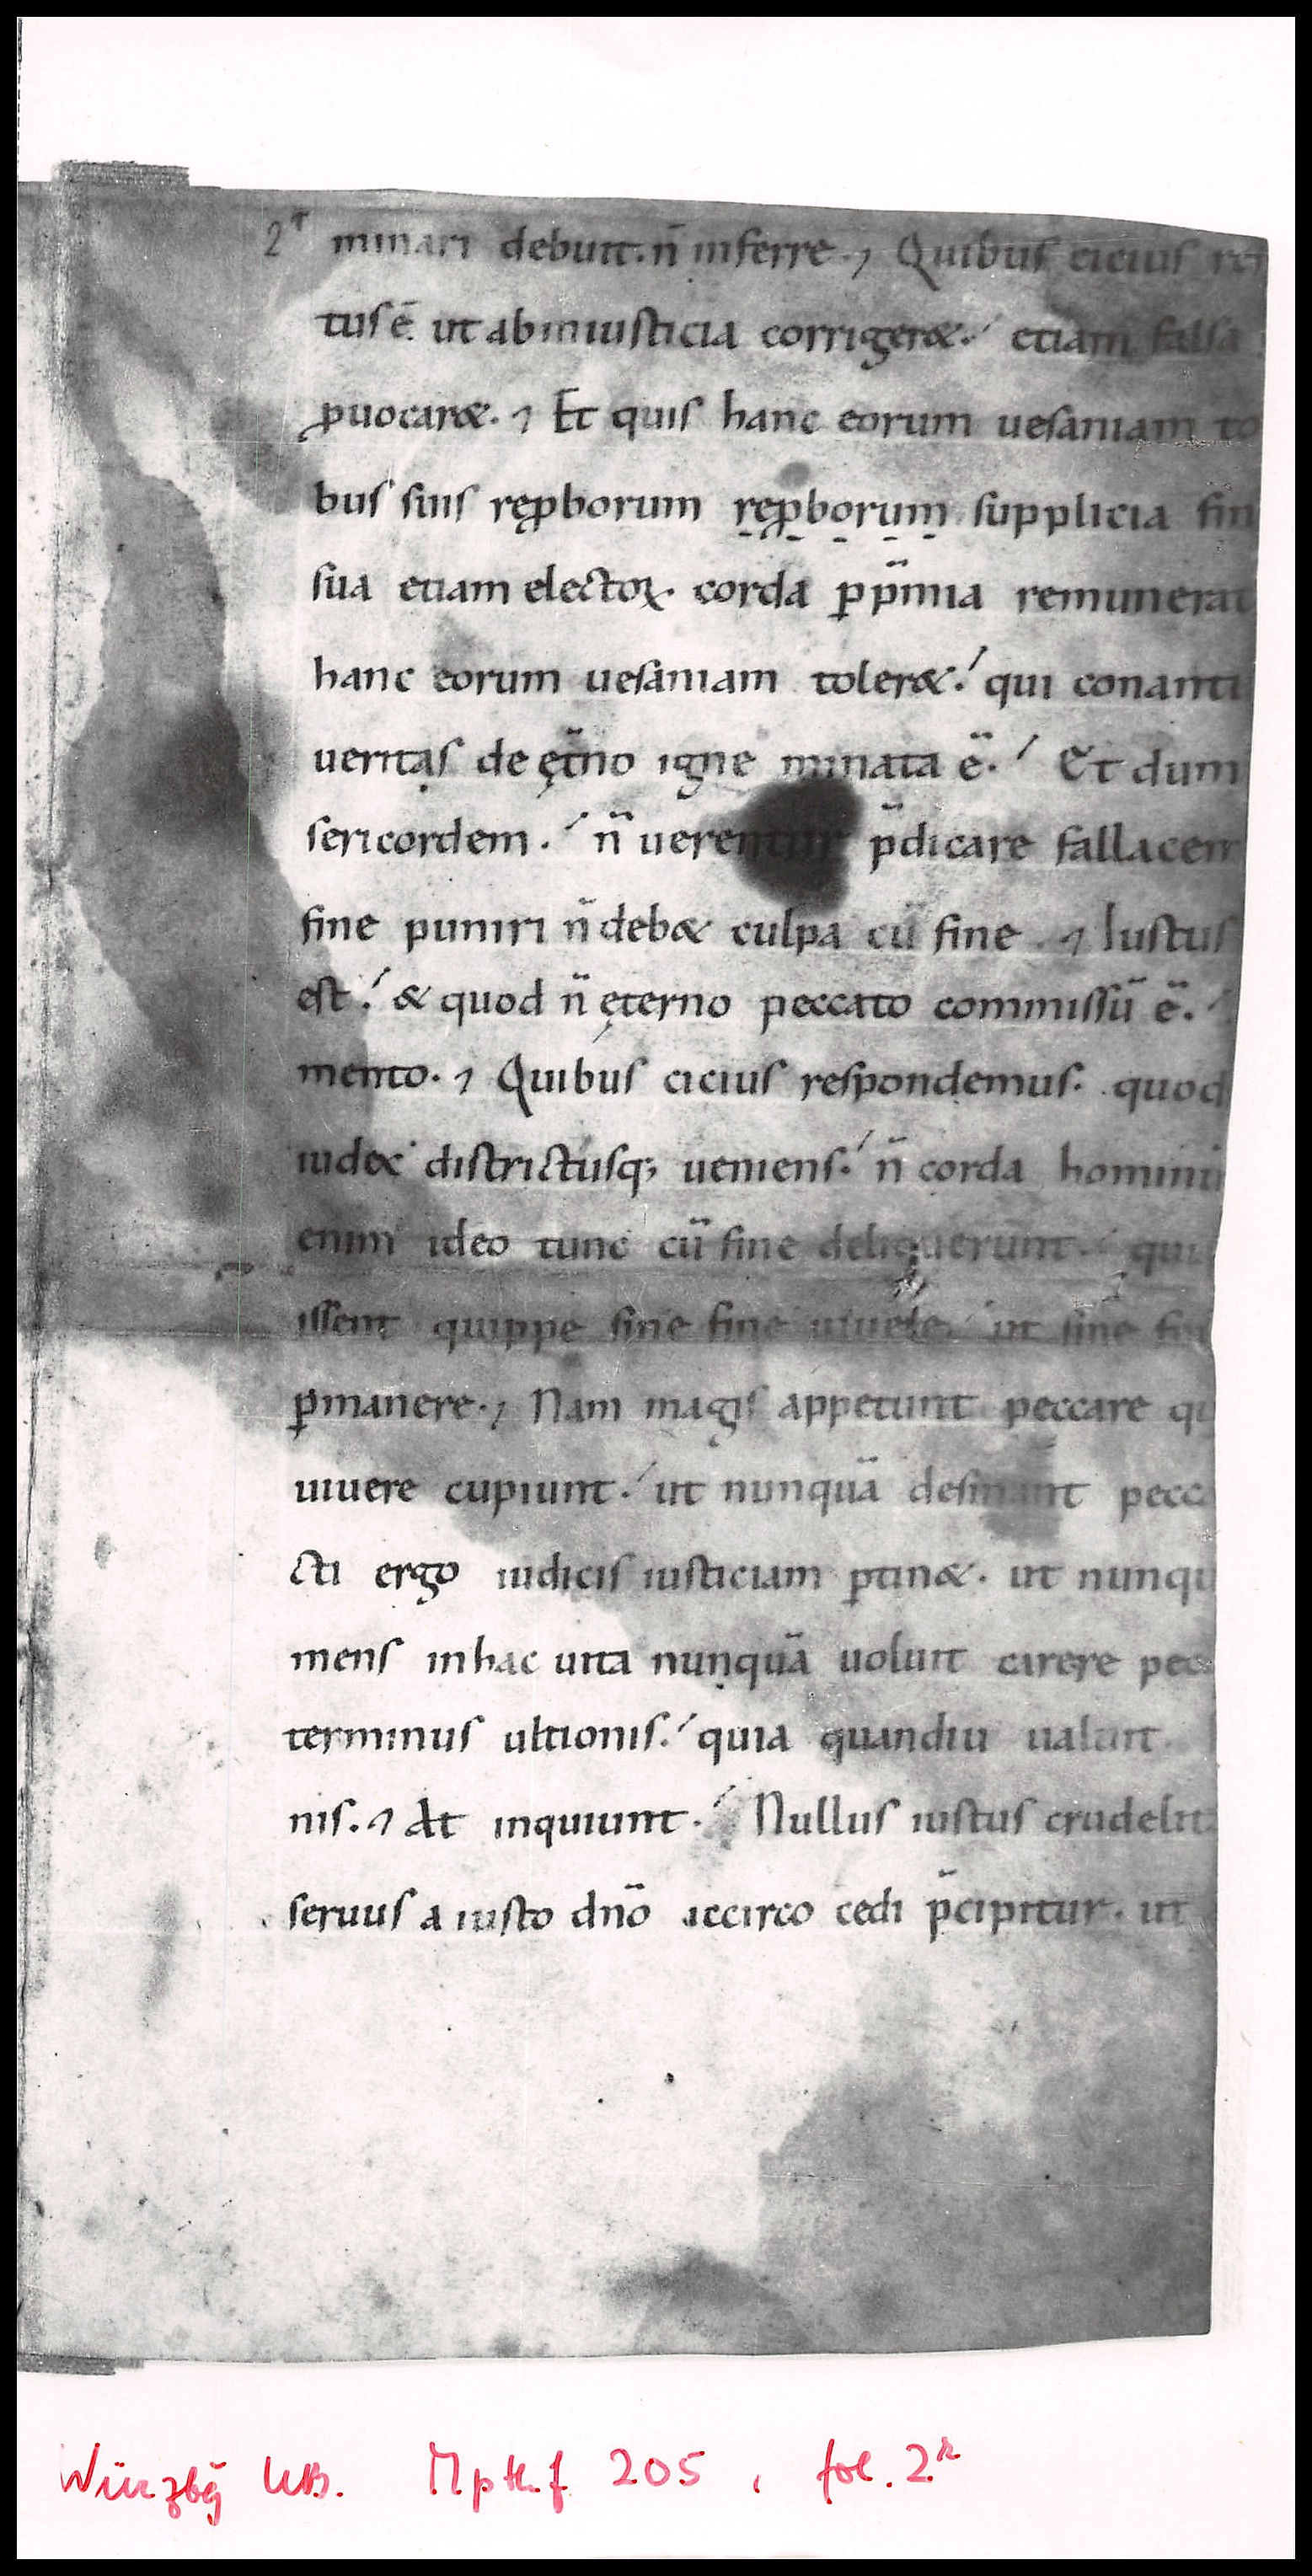 2r minari debuit. n̄ inferre., Quibus cicius re
tus ē. ut ab iniusticia corrigeret. etiam falsa
ꝓuocaret., Et quis hanc eorum uesaniam to
bus suis ręꝓborum ręꝓborum supplicia fin
sua etiam electoꝝ. corda ꝑ p̄mia remunerat
hanc eorum uesaniam toler&. qui conant
ueritas de ęt̄no igne minata ē. Et dum
sericordem. n̄ uerentur p̄dicare fallacem
fine puniri n̄ deb& culpa cū fine ., Iustus
est. & quod n̄ ęterno peccato commissū ē.
mento., Quibus cicius respondemus. quod
iudex districtusq; ueniens. n̄ corda homini
enim ideo tunc cū fine deliquerunt. qui
issent quippe sine fine uiuere. ut sine fin
ꝑmanere., Nam magis appetunt peccare qu
uiuere cupiunt. ut nunquā desinant pecc
cti ergo iudicis iusticiam ꝑtin&. ut nunqu
mens in hac uita nunquā uoluit carere pec
terminus ultionis. quia quandiu ualuit
nis., At inquiunt. Nullus iustus crudelit
seruus a iusto dn̄o iccirco cedi p̄cipitur. ut
Würzbg UB. Mpth.f 205, fol. 2r